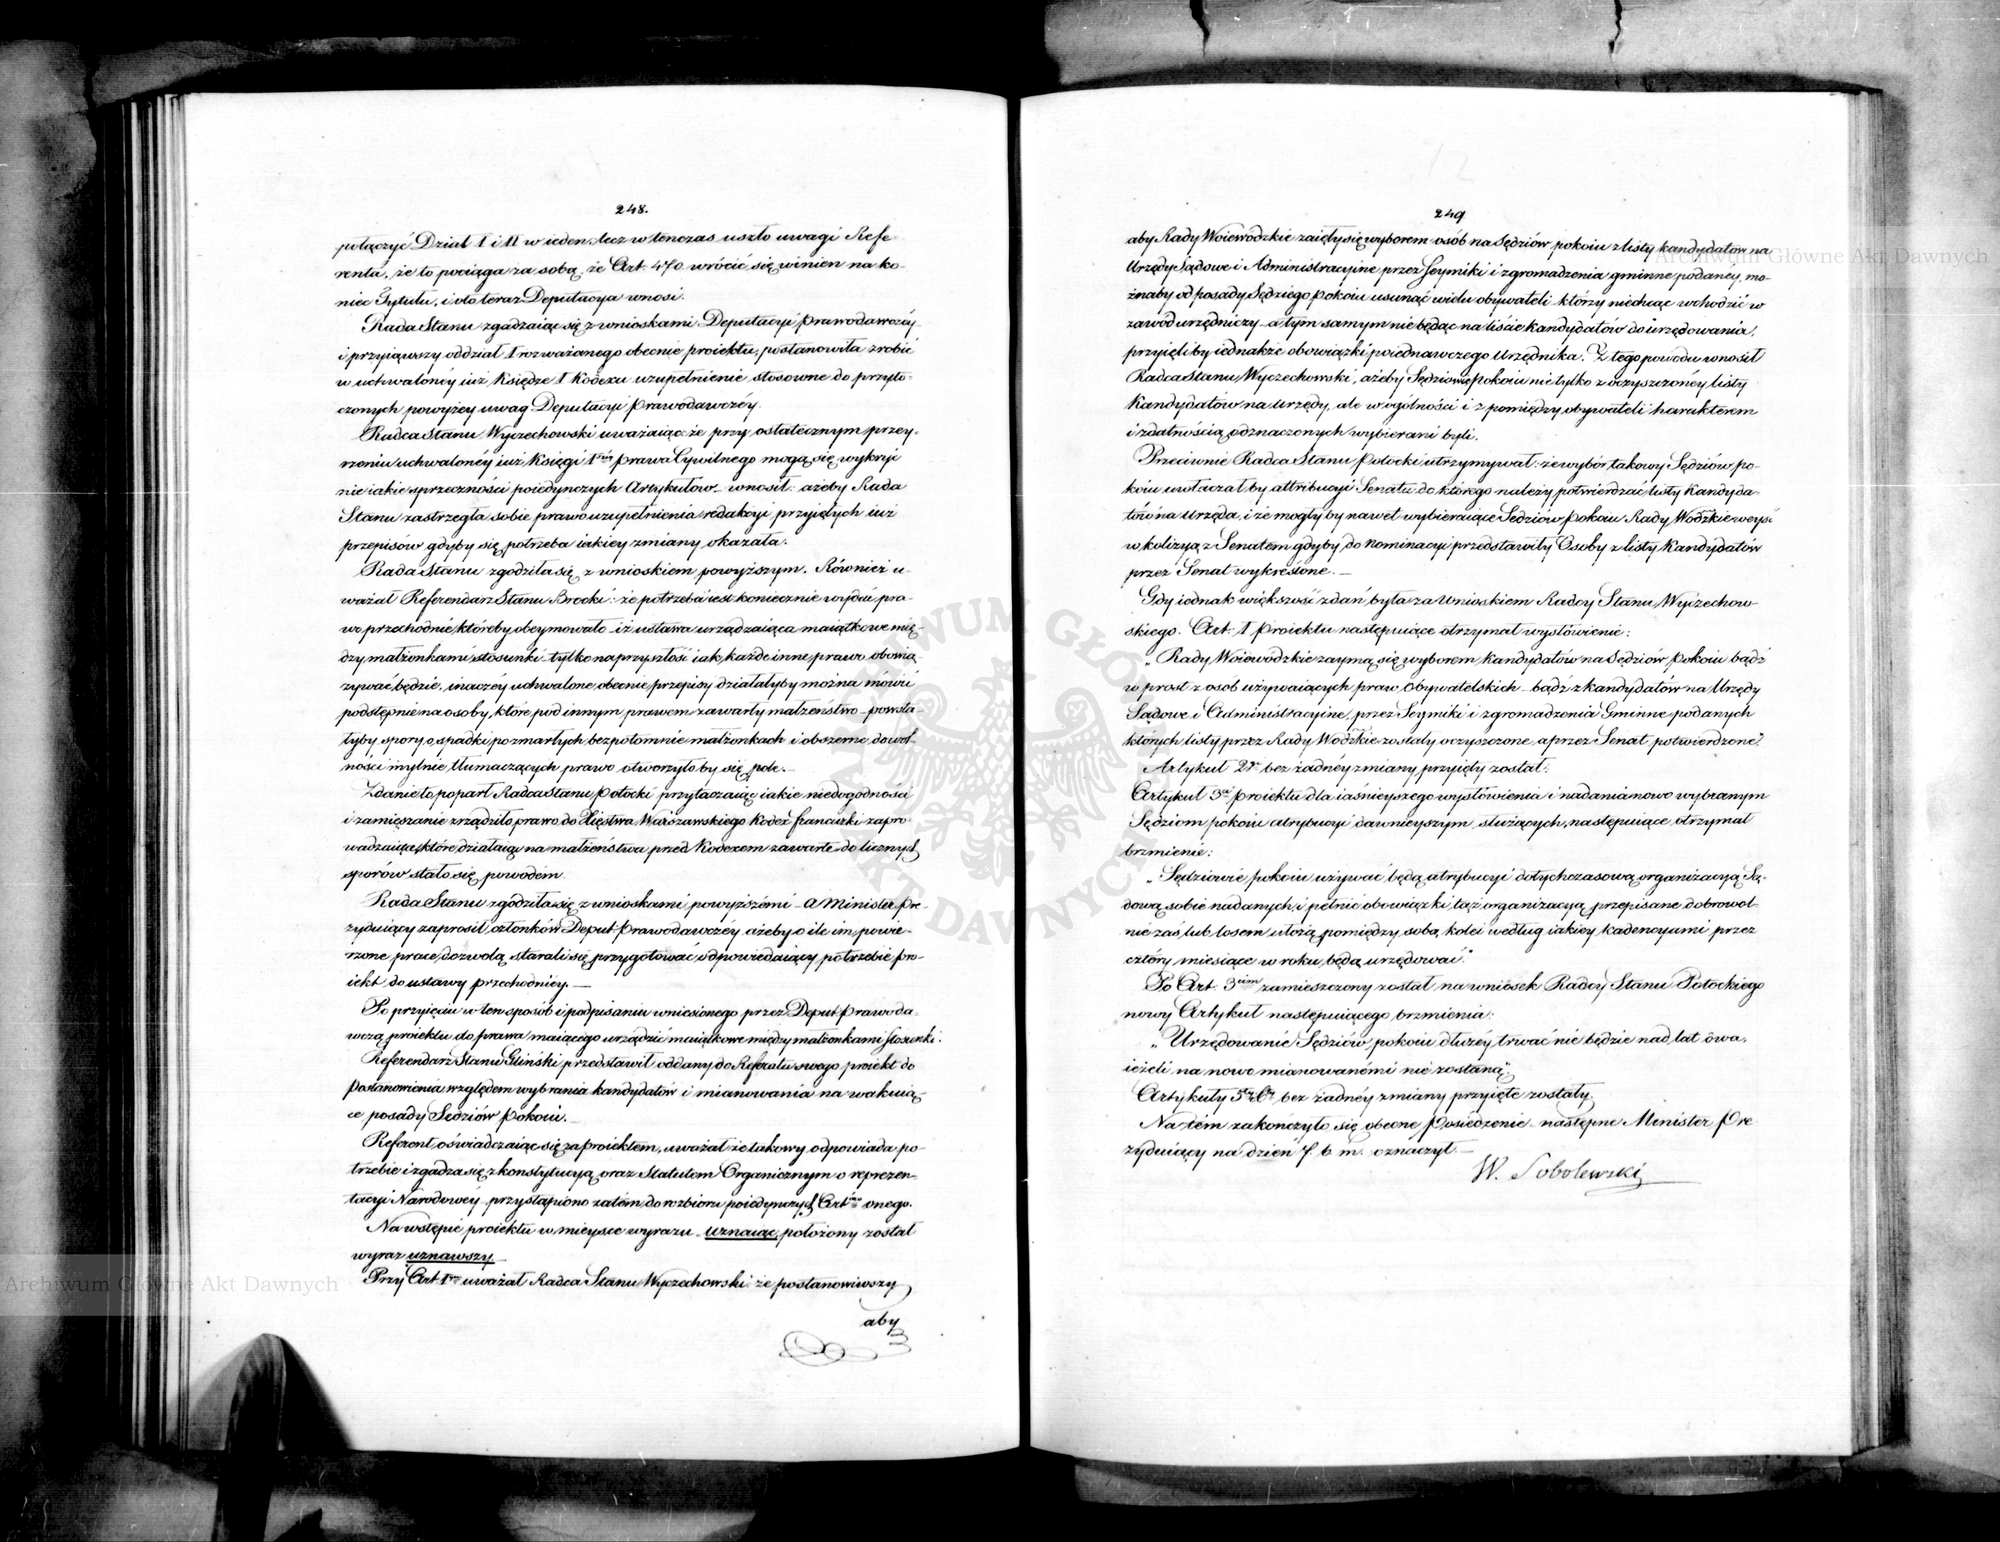 248.
połączyć Dział I i II w ieden, lecz w tenczas uszło uwagi Refe-
renta, że to pociąga za sobą, że Art. 470 wrócić się winien na ko-
niec Tytułu, i oto teraz Deputacya wnosi.
Rada Stanu zgadzaiąc się z wnioskami Deputacyi prawodawczéy
i przyiąwszy oddział I rozważanego obecnie proiektu, postanowiła zrobić
w uchwalonéy iuż Księdze I Kodexu uzupełnienie stosowne do przyto-
czonych powyżey uwag Deputacyi prawodawczéy.
Radca Stanu Wyczechowski uważaiąc że przy ostatecznym przey-
rzeniu uchwalonéy iuż Księgi 1széy prawa Cywilnego mogą się wykryć
nieiakie sprzeczności poiedynczych Artykułów – wnosił: ażeby Rada
Stanu zastrzegła sobie prawo uzupełnienia redakcyi przyiętych iuż
przepisów gdyby się potrzeba iakiey zmiany okazała.
Rada Stanu zgodziła się z wnioskiem powyższym. Również u-
ważał Referendarz Stanu Brocki: że potrzeba iest koniecznie wydać pra-
wo przechodnie, któreby obeymowało iż ustawa urządzaiąca maiątkowe mię-
dzy małżonkami stosunki – tylko na przyszłość iak każde inne prawo obowią-
zywać będzie, inaczéy uchwalone obecnie przepisy działałyby można mówić
podstępnie na osoby, które pod innym prawem zawarły małżeństwo – powsta-
łyby spory o spadki po zmarłych bezpotomnie małżonkach i obszerne dowol-
ności mylnie tłumaczących prawo otworzyłoby się pole.–
Zdanie to poparł Radca Stanu Potocki przytaczaiąc iakie niedogodności
i zamięszanie zrządziło prawo do Xięstwa Warszawskiego Kodex francuzki zapro-
wadzaiące, które działaiąc na małżeństwa przed Kodexem zawarte do licznych
sporów stało się powodem.
Rada Stanu zgodziła się z wnioskami powyższémi – a Minister Pre-
zyduiący zaprosił członków Deput: Prawodawczéy ażeby o ile im powie-
rzone prace dozwolą starali się przygotować odpowiedaiący potrzebie pro-
iekt do ustawy przechodniéy.–
Po przyięciu w ten sposób i podpisaniu wniesionego przez Deput: prawoda-
wczą proiektu do prawa maiącego urządzić maiątkowe między małżonkami stosunki:
Referendarz Stanu Gliński przedstawił oddany do Referatu swego proiekt do
postanowienia względem wybrania kandydatów i mianowania na wakuią-
ce posady Sędziów Pokoiu.–
Referent oświadczaiąc się za proiektem, uważał że takowy odpowiada po-
trzebie i zgadza się z konstytucyą oraz Statutem Organicznym o reprezen-
tacyi Narodowéy – przystąpiono zatém do rozbioru poiedynczych Artłów onego.
Na wstępie proiektu w mieysce wyrazu „uznaiąc, położony został
wyraz uznawszy.–
Przy Art. 1m uważał Radca Stanu Wyczechowski: że postanowiwszy
aby
249
aby Rady Woiewódzkie zaięły się wyborem osób na Sędziów pokoiu z listy kandydatów na
Urzędy Sądowe i Administracyine przez Seymiki i zgromadzenia gminne podanéy, mo-
żnaby od posady Sędziego Pokoiu usunąć wielu obywateli którzy niechcąc wchodzić w
zawód urzędniczy – a tym samym nie będąc na liście kandydatów do urzędowania,
przyięliby iednakże obowiązki poiednawczego Urzędnika. Z tego powodu wnosił
Radca Stanu Wyczechowski, ażeby Sędziowie pokoiu nie tylko z oczyszczonéy listy
Kandydatów na urzędy, ale w ogólności i z pomiędzy obywateli harakterem
i zdatnością odznaczonych wybierani byli.
Przeciwnie Radca Stanu Potocki utrzymywał: że wybór takowy Sędziów po-
koiu uwłaczałby attribucyi Senatu do którego należy potwierdzać listy Kandyda-
tów na Urzęda, i że mogłyby nawet wybieraiące Sędziów Pokoiu Rady Wódzkie weyść
w kolizyą z Senatem gdyby do nominacyi przedstawiły Osoby z listy Kandydatów
przez Senat wykreślone.–
Gdy iednak większość zdań była za Wnioskiem Radcy Stanu Wyczechow-
skiego. Art. 1 proiektu następuiące otrzymał wysłowienie:
„Rady Woiewódzkie zaymą się wyborem kandydatów na Sędziów Pokoiu bądź
w prost z osób używaiących praw Obywatelskich – bądź z kandydatów na Urzędy
Sądowe i Administracyine, przez Seymiki i zgromadzenia Gminne podanych
których listy przez Rady Wódzkie zostały oczyszczone a przez Senat potwierdzone".
Artykuł 2gi bez żadnéy zmiany przyięty został.
Artykuł 3ci proiektu dla iaśnieyszego wysłowienia i nadania nowo wybranym
Sędziom pokoiu atrybucyi dawnieyszym służących, następuiące otrzymał
brzmienie:
„Sędziowie pokoiu używać będą atrybucyi dotychczasową organizacyą Są-
dową sobie nadanych, i pełnić obowiązki tąż organizacyą przepisane dobrowol-
nie zaś lub losem ułożą pomiędzy sobą kolei według iakiey kadencyami przez
cztéry miesiące w roku będą urzędować."
Po Art. 3cim zamieszczony został na wniosek Radcy Stanu Potockiego
nowy Artykuł następuiącego brzmienia:
„Urzędowanie Sędziów pokoiu dłużéy trwać nie będzie nad lat dwa,
ieżeli na nowo mianowanémi nie zostaną".
Artykuły 5ty 6ty bez żadnéy zmiany przyięte zostały.
Na tém zakończyło się obecne posiedzenie – następne Minister Pre
zyduiący na dzień 7 b. m. oznaczył.–
W. Sobolewski
Archiwum Główne Akt Dawnych
Archiwum Główne Akt Dawnych
ARCHIWUM GŁÓWNE AKT DAWNYCH